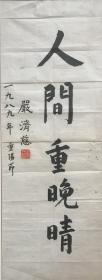 人間重晚晴
嚴濟慈
一九八九年重陽節